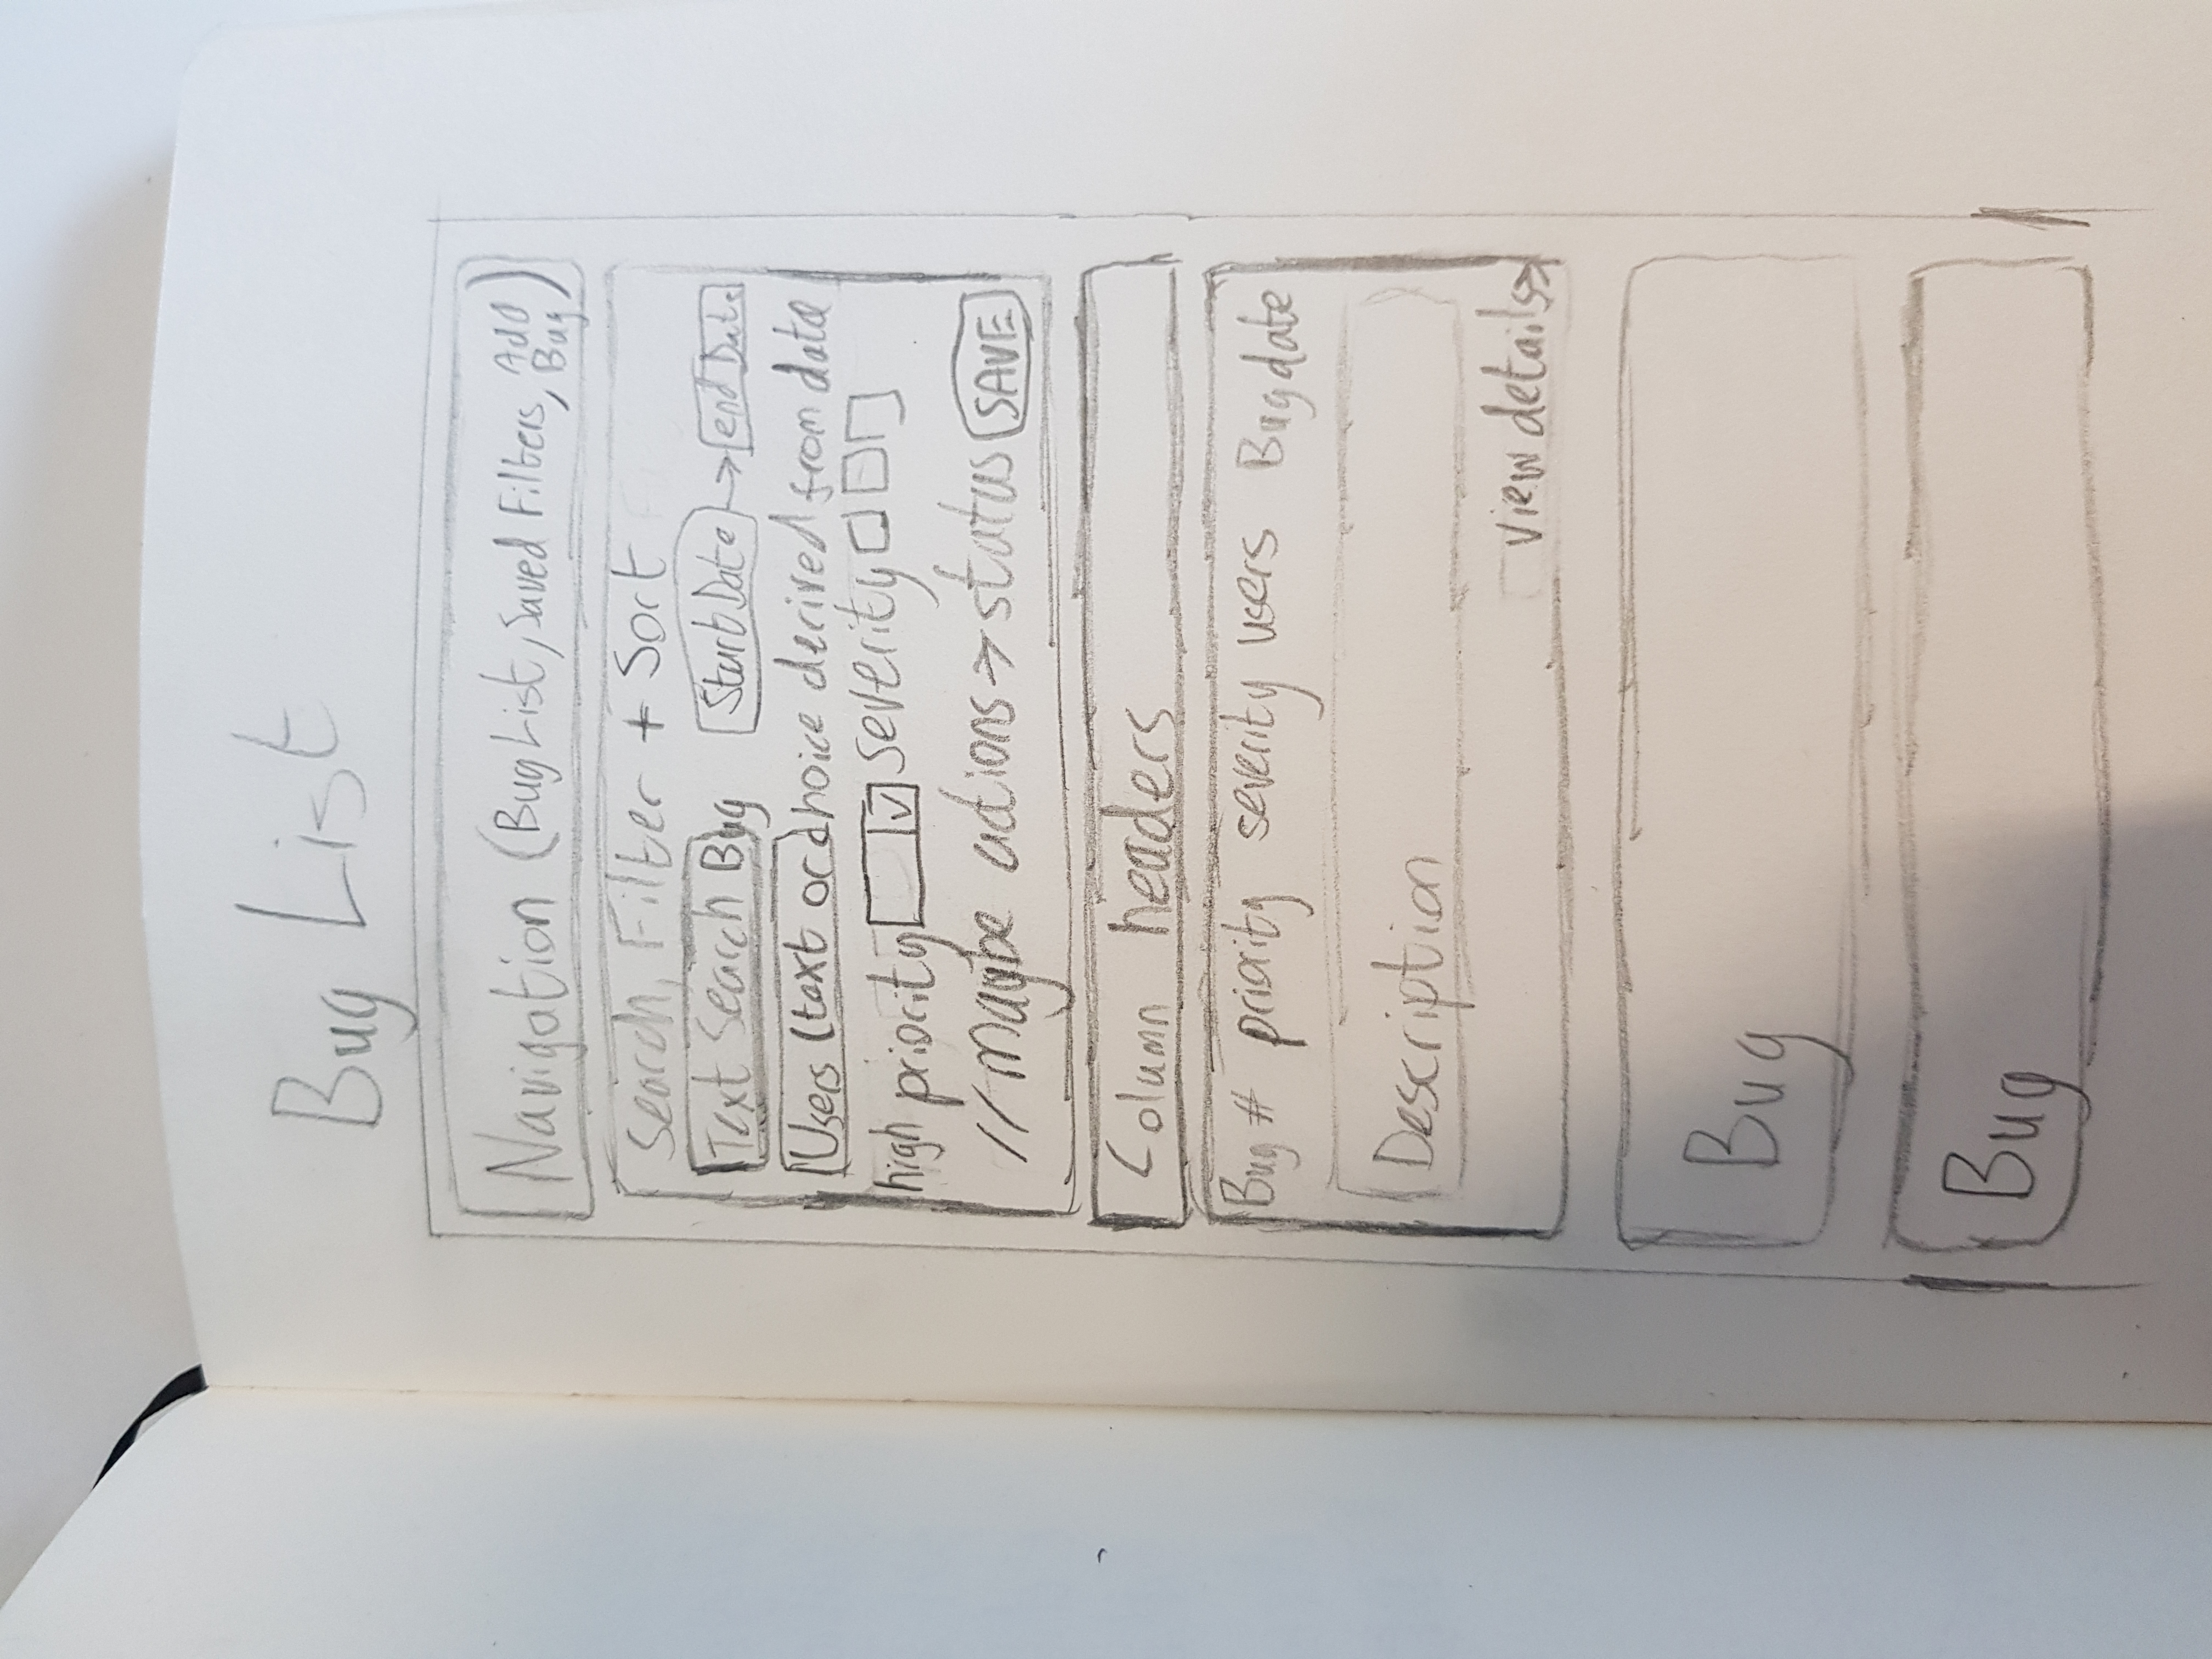 Bug List
Navigation (Bug List, Saved Filters, Add Bug)
Search, Filter + Sort
Text Search Bug Start Date → end Date
Users (text or choice derived from data
high priority severity
// maybe actions → status SAVE
Column headers
Bug # priority severity users Bug date
Description
view details →
Bug
Bug